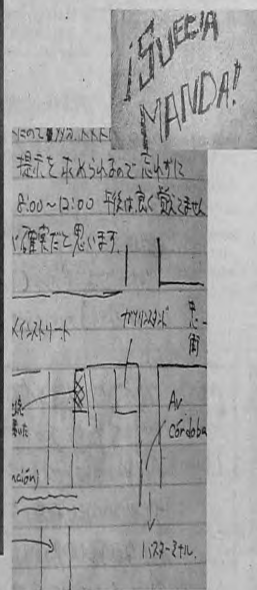 ¡SUECIA
MANDA!
提示を求められるので忘れずに
8:00～12:00 午後は良く覚えてません
確実だと思います.
メインストリート
ガソリンスタンド
Av
córdoba
バスターミナル.
nción)